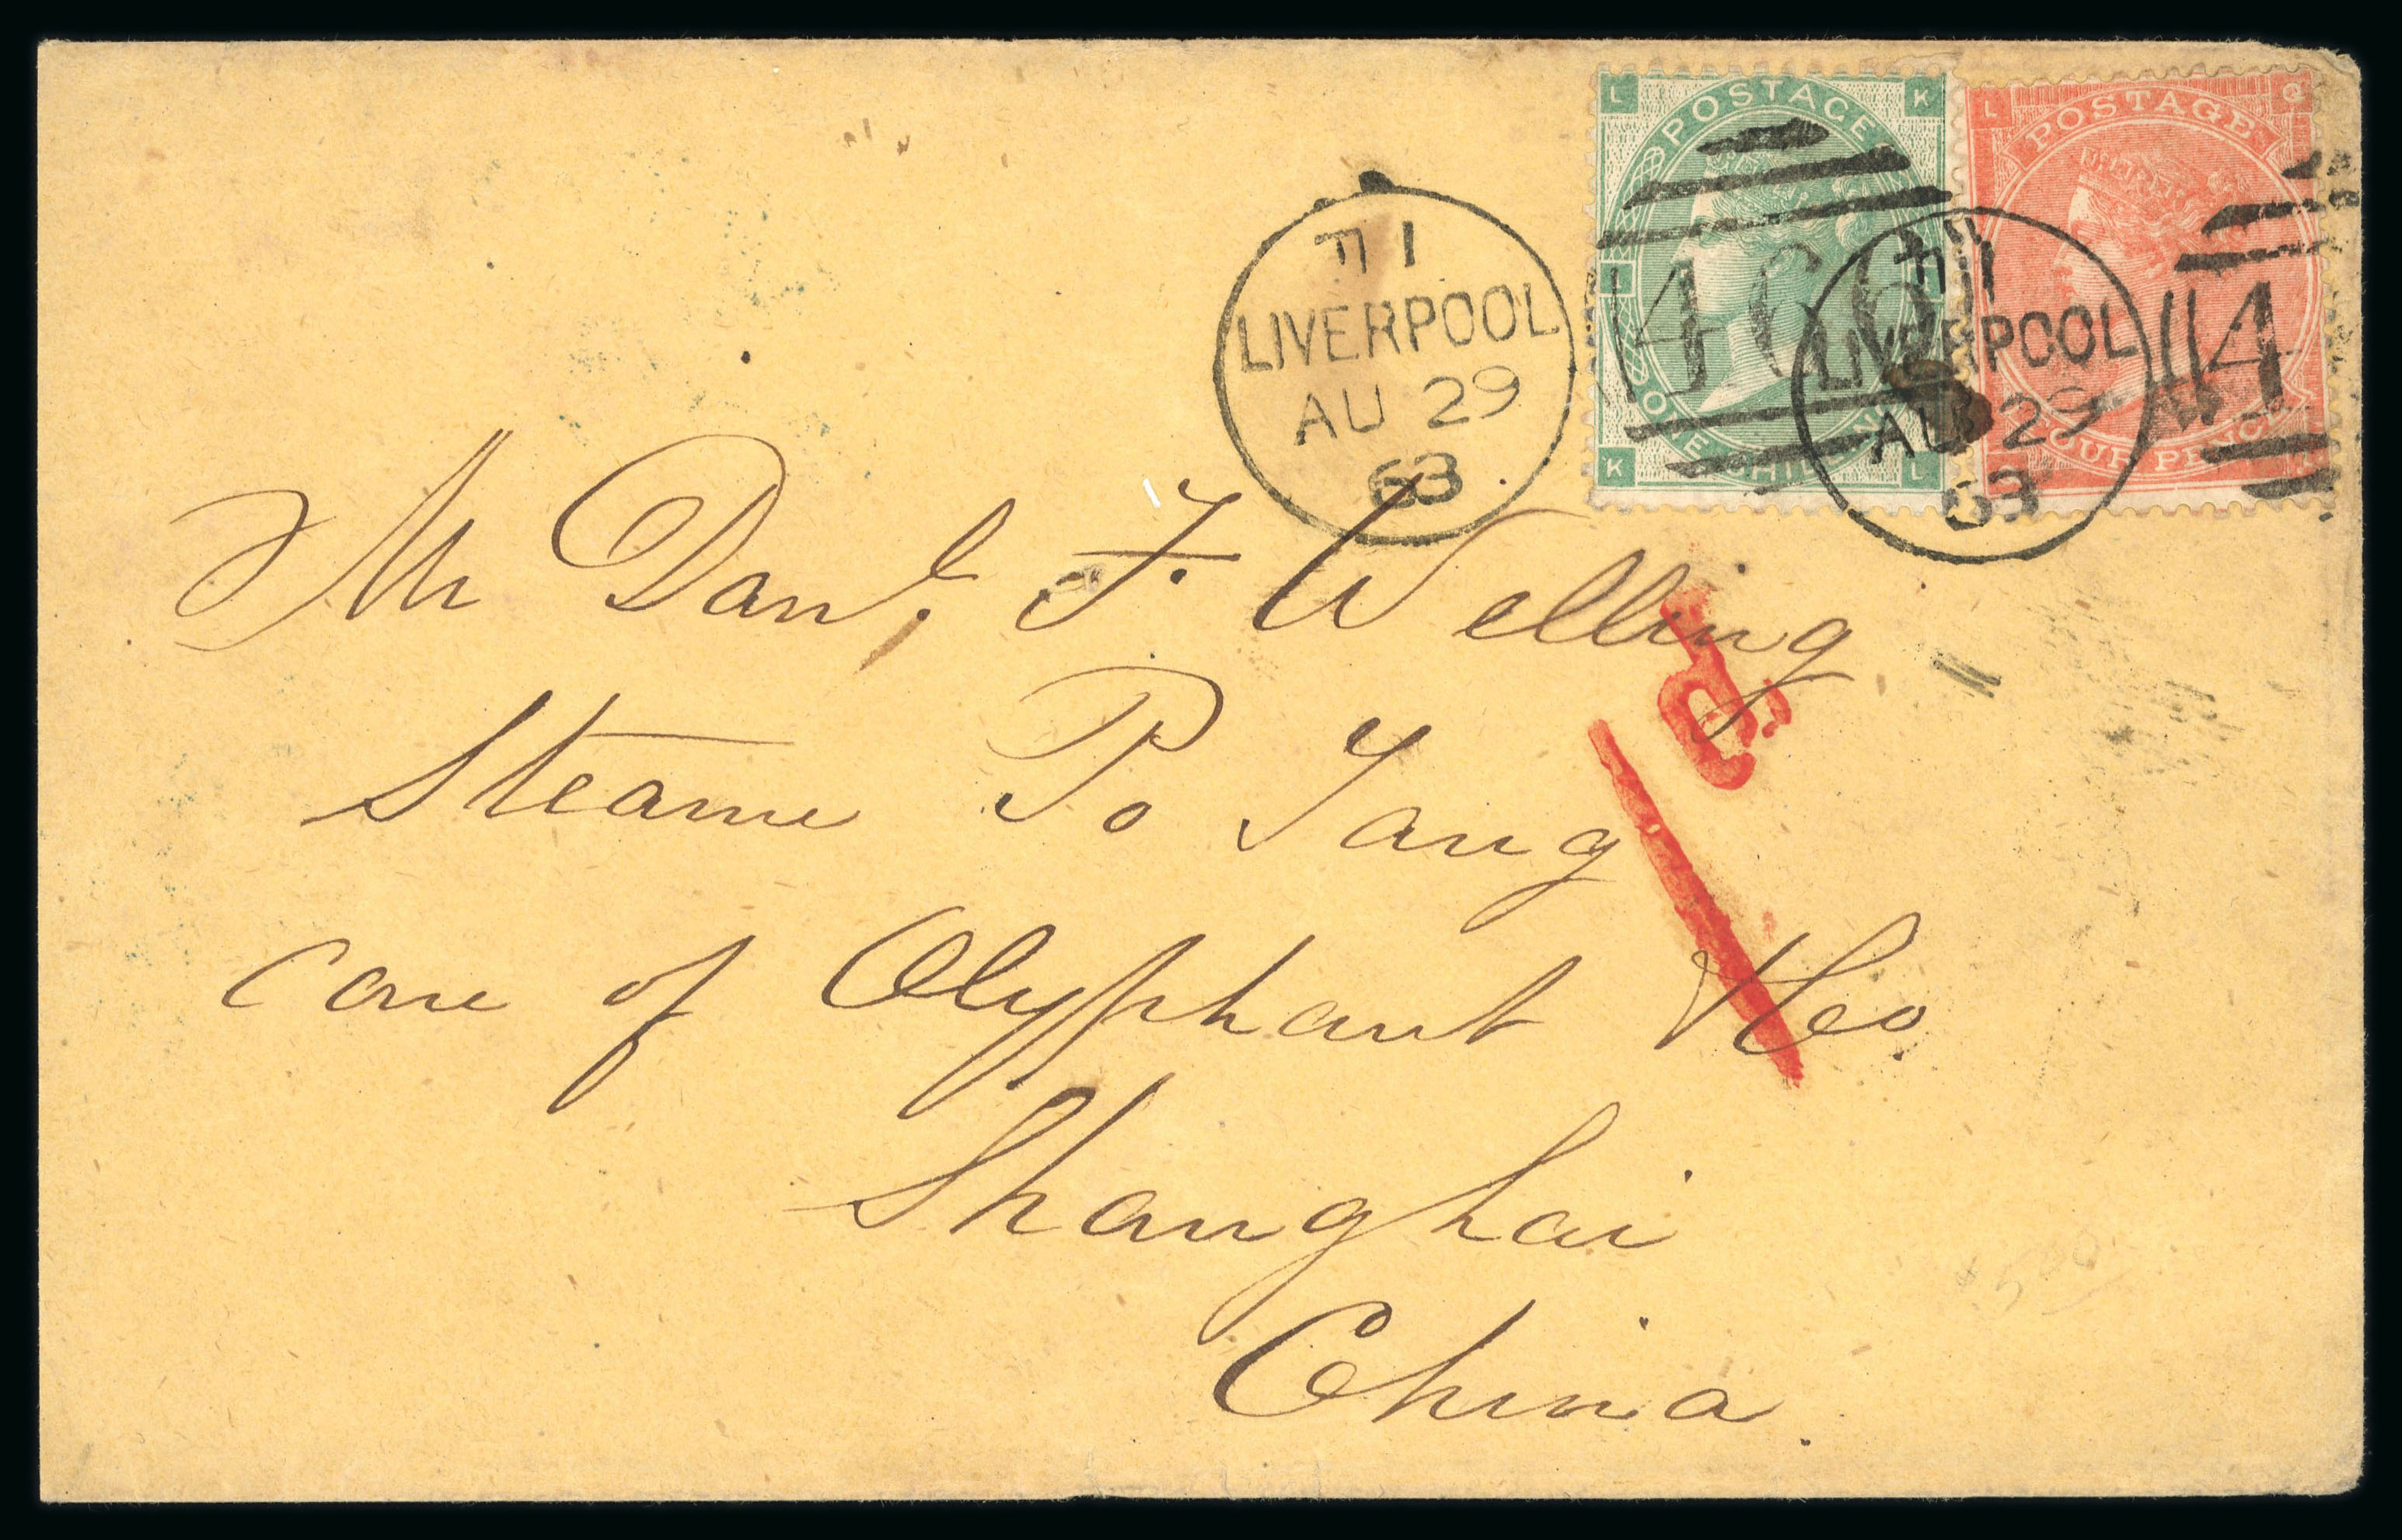 L POSTAGE K
ONE SHILLING
K L
L POSTAGE G
FOUR PENCE
466
4
LIVERPOOL
AU 29
63
LIVERPOOL
AU 29
63
Mr Danl. F. Welling
Steame Po Yang
care of Olyphant & Co.
Shanghai
China
1 d.